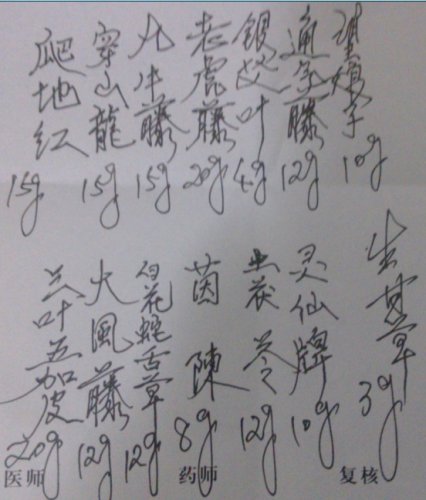 10g
通京藤 12g
银叶 4g
老虎藤 20g
九牛藤 15g
穿山龍 15g
爬地红 15g
生甘草 3g
灵仙牌 10g
土茯苓 12g
茵陳 8g
白花蛇舌草 12g
大風藤 12g
三叶五加皮 20g
医师 药师 复核